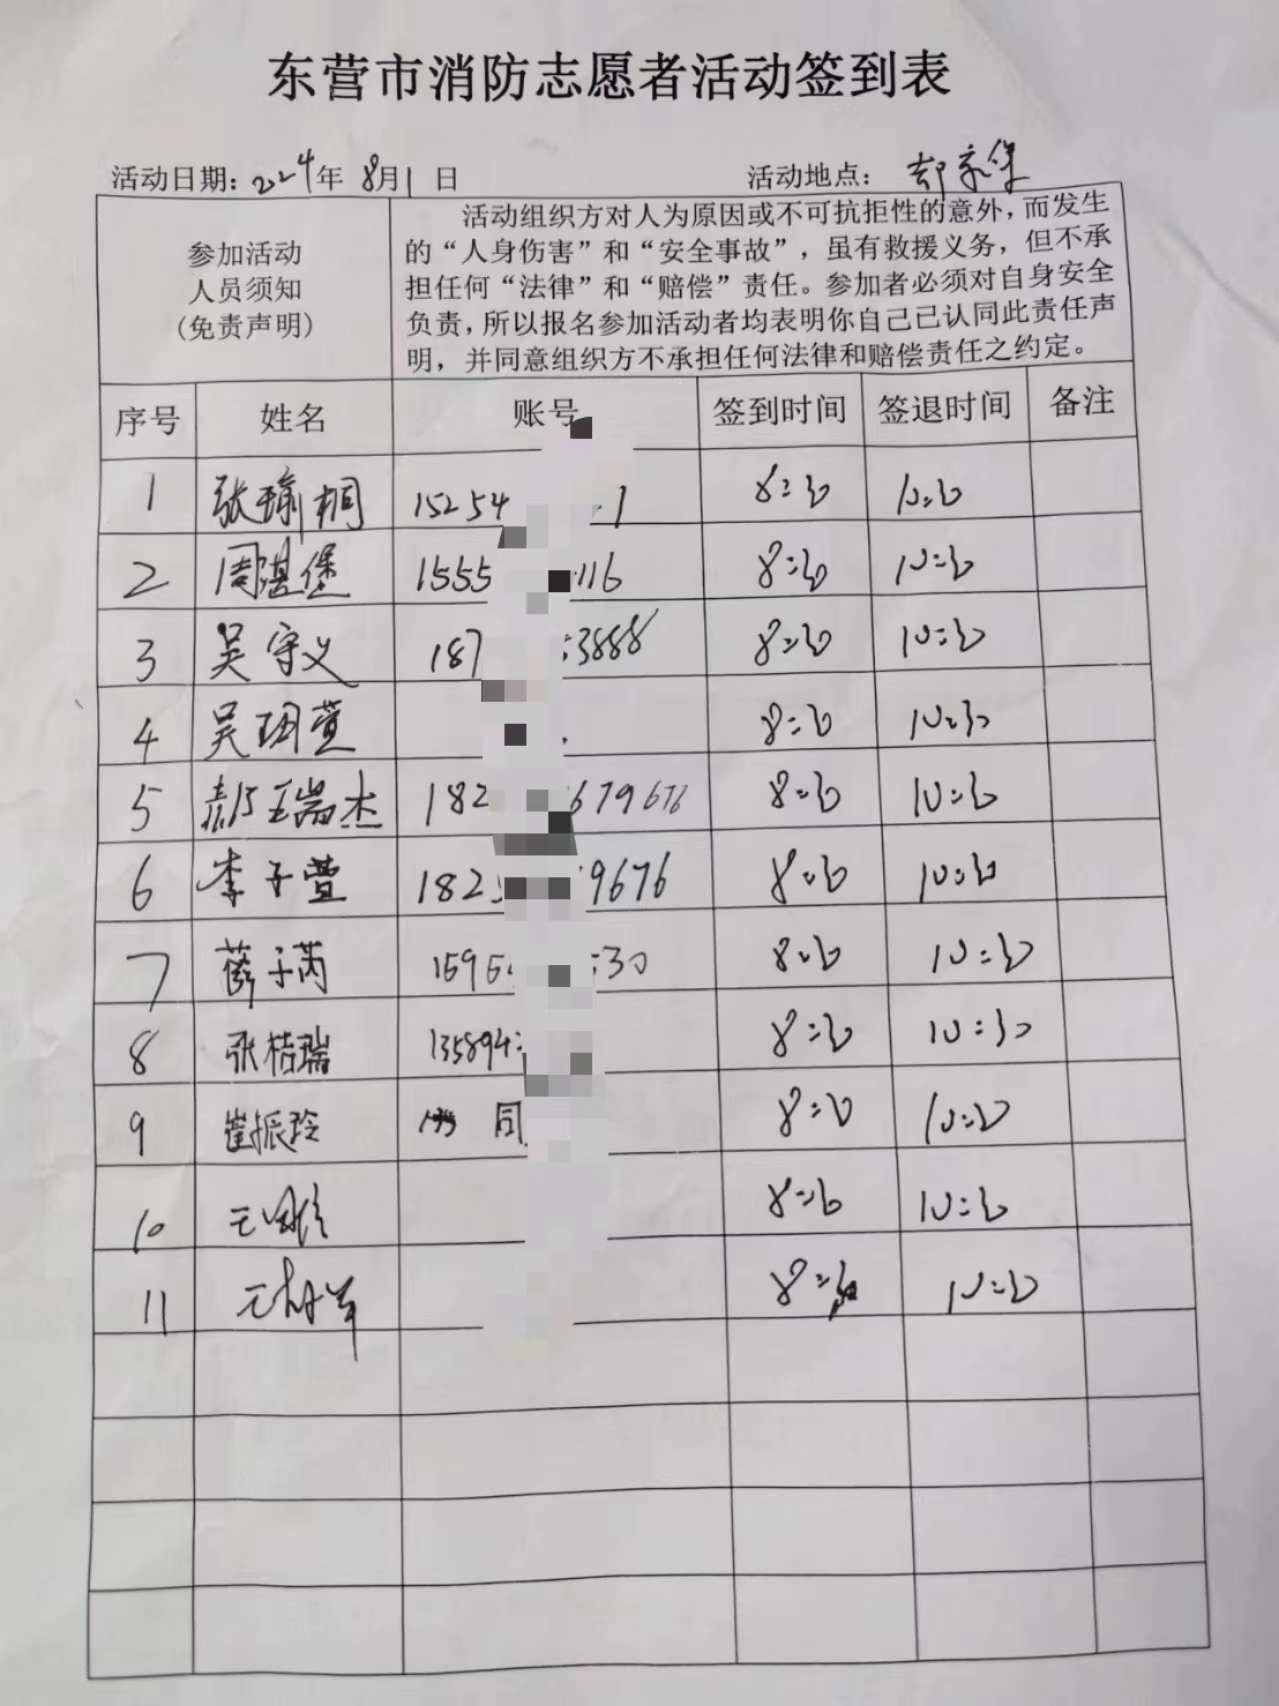 东营市消防志愿者活动签到表
活动日期：2024年 8月1 日 活动地点：郝家堡
参加活动
人员须知
（免责声明）
活动组织方对人为原因或不可抗拒性的意外，而发生
的“人身伤害”和“安全事故”，虽有救援义务，但不承
担任何“法律”和“赔偿”责任。参加者必须对自身安全
负责，所以报名参加活动者均表明你自己已认同此责任声
明，并同意组织方不承担任何法律和赔偿责任之约定。
序号 姓名 账号 签到时间 签退时间 备注
1 张瑜桐 15254 1 8:30 10:30
2 周湛堡 1555 116 8:30 10:30
3 吴守义 187 3888 8:30 10:30
4 吴玥萱 8:30 10:30
5 瑞杰 182 679676 8:30 10:30
6 李子萱 182 9676 8:30 10:30
7 薛子芮 1595 30 8:30 10:30
8 张桔瑞 135894 8:30 10:30
9 崔振玲 同 8:30 10:30
10 8:30 10:30
11 8:30 10:30